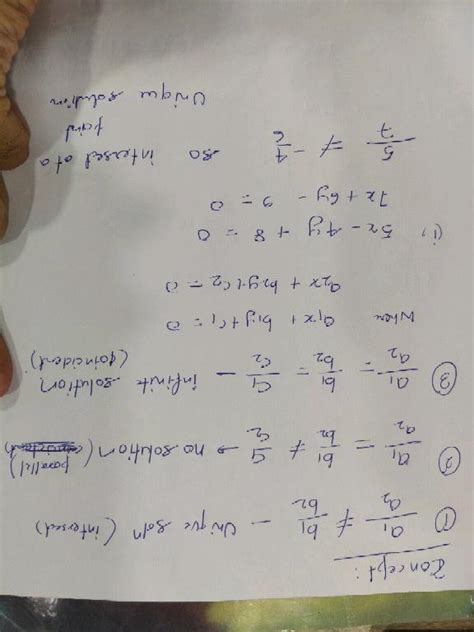 Concept:
① a₁/a₂ ≠ b₁/b₂ – Unique solⁿ (intersect)
② a₁/a₂ = b₁/b₂ ≠ c₁/c₂ → no solution (parallel)
③ a₁/a₂ = b₁/b₂ = c₁/c₂ – infinite solution (coincident)
When a₁x + b₁y + c₁ = 0
a₂x + b₂y + c₂ = 0
(i) 5x – 4y + 8 = 0
7x + 6y – 9 = 0
5/7 ≠ –4/6 so intersect at a point
Unique solution